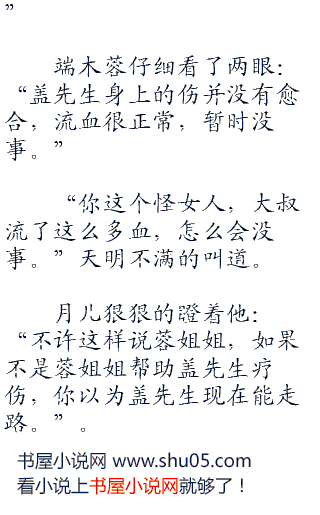 ”
端木蓉仔细看了两眼：
“盖先生身上的伤并没有愈
合，流血很正常，暂时没
事。”
“你这个怪女人，大叔
流了这么多血，怎么会没
事。”天明不满的叫道。
月儿狠狠的瞪着他：
“不许这样说蓉姐姐，如果
不是蓉姐姐帮助盖先生疗
伤，你以为盖先生现在能走
路。”。
书屋小说网 www.shu05.com
看小说上书屋小说网就够了！